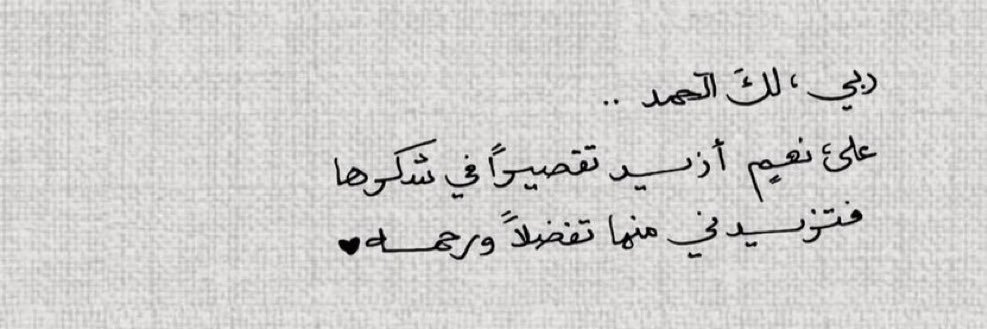 ربي ، لكَ الحمد ..
علىٰ نعمٍ أزيد تقصيراً في شكرها
فتزيدني منها تفضلاً ورحمه♥